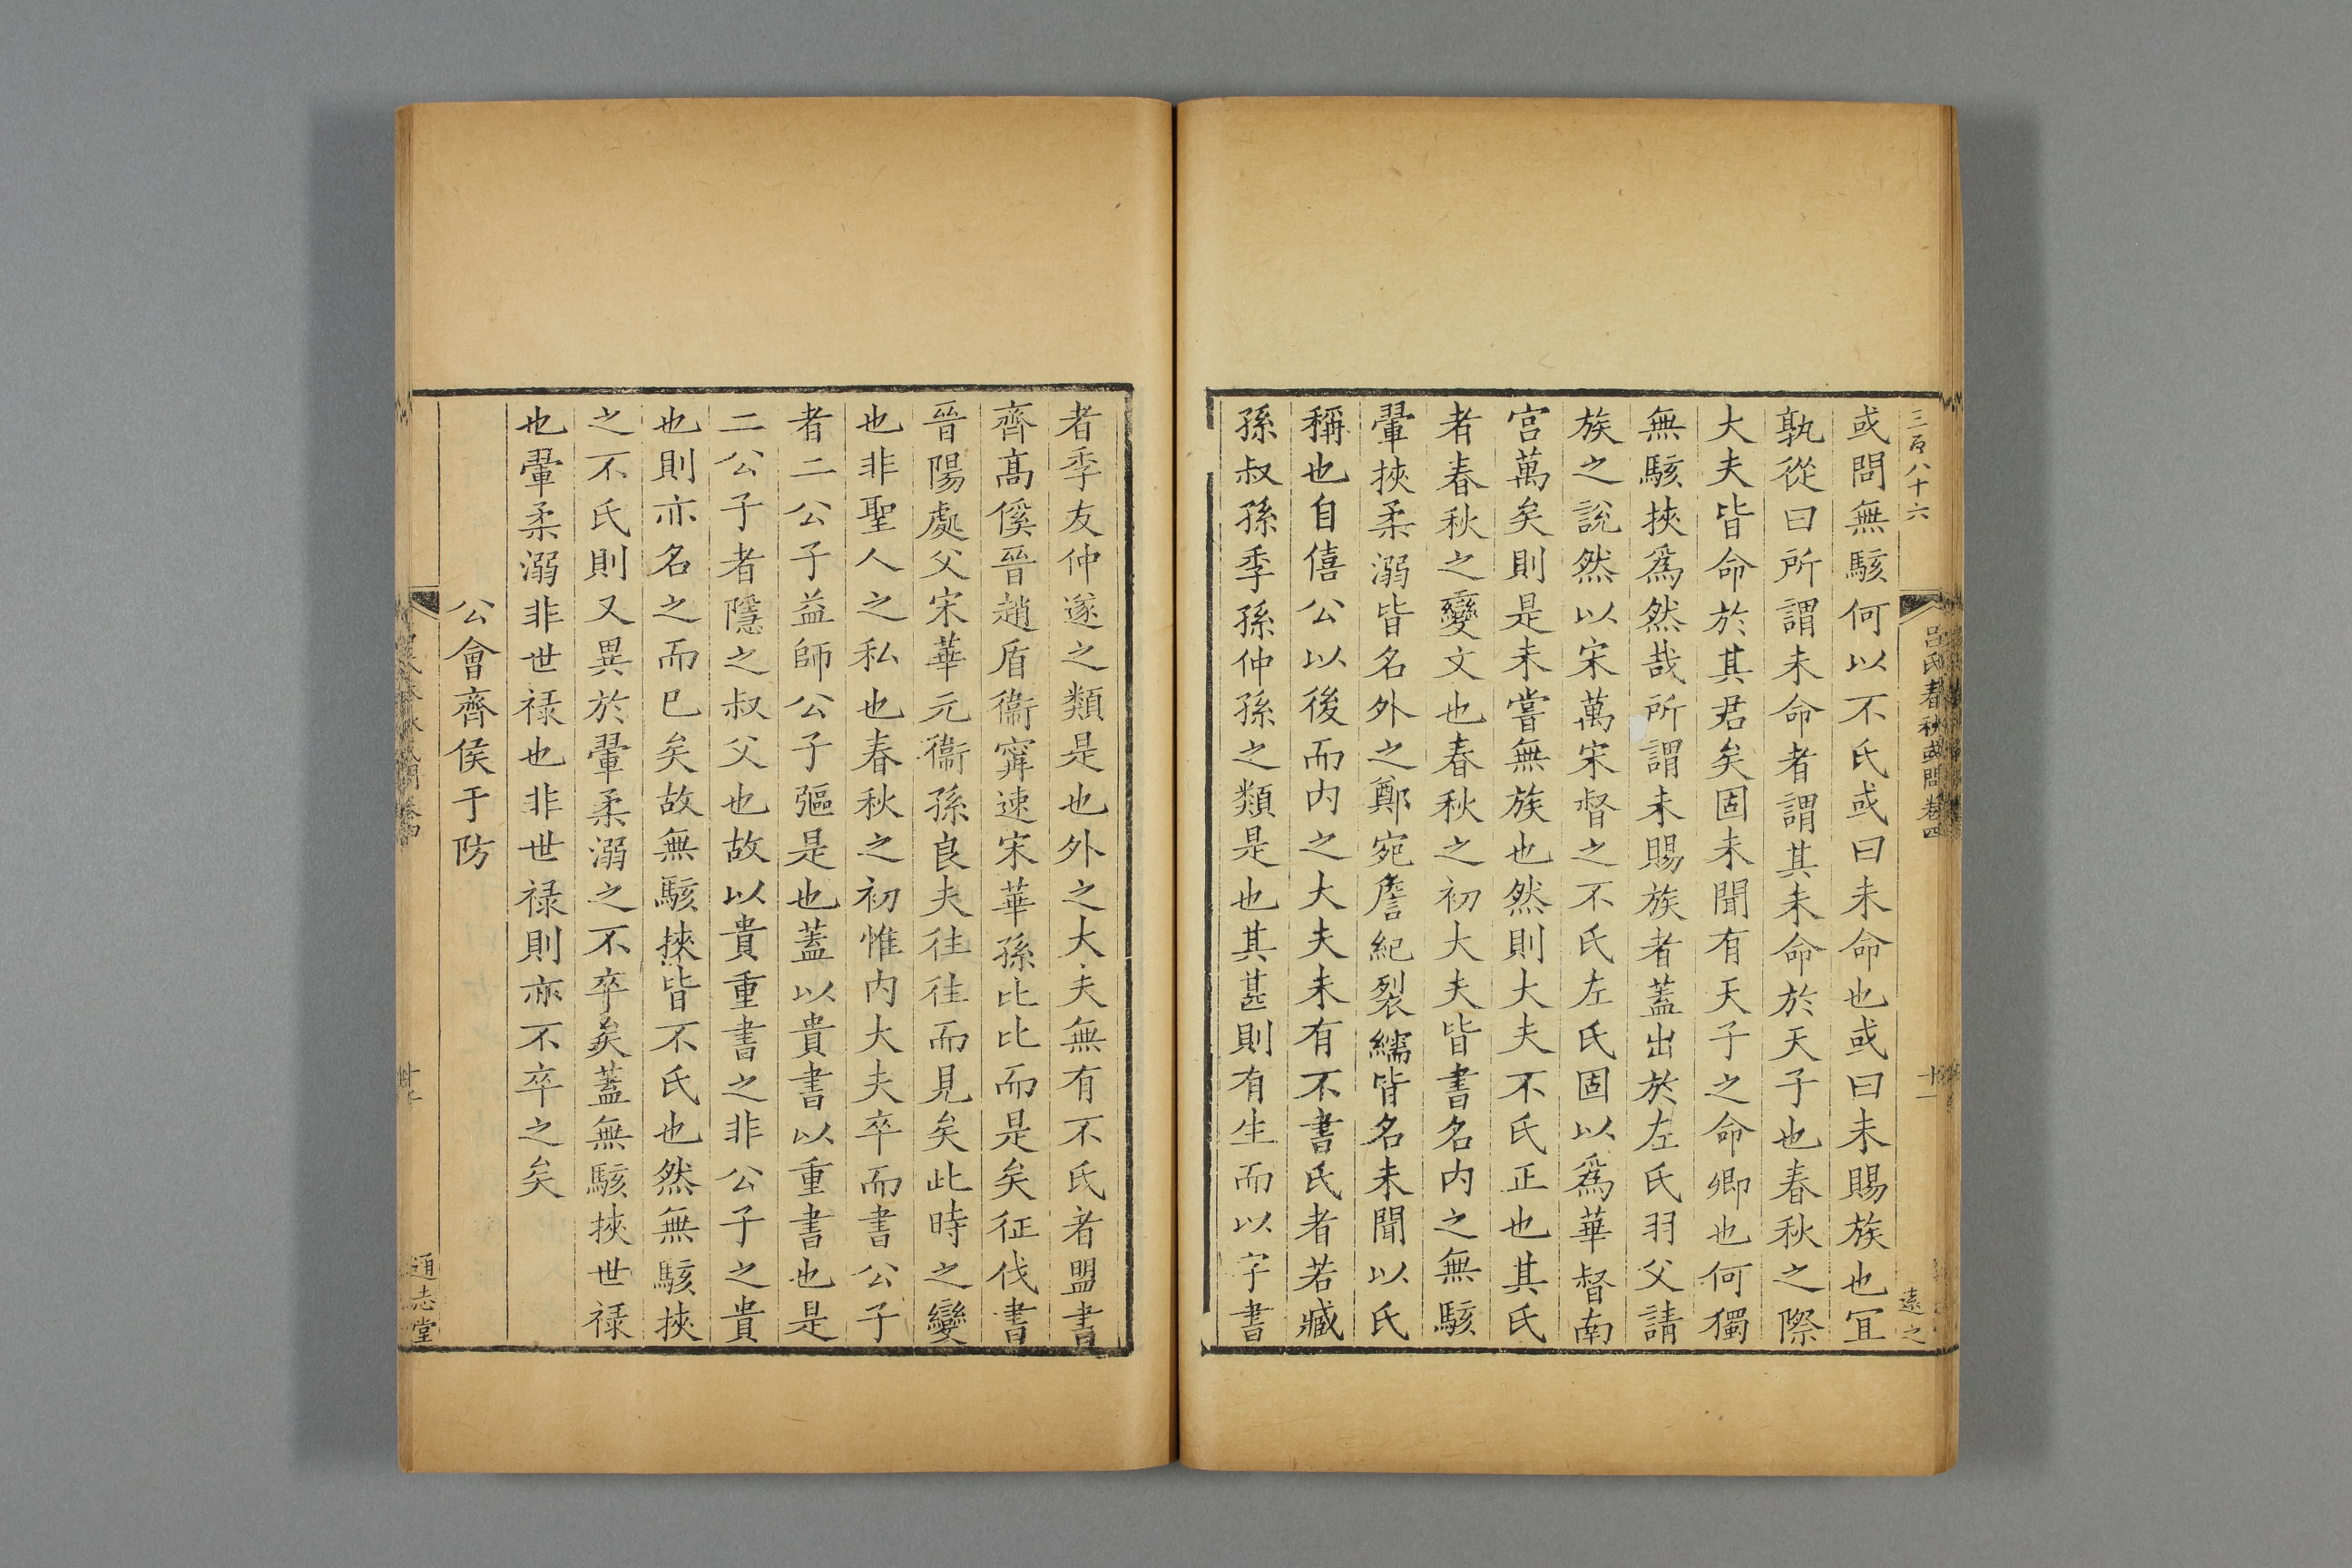 三百八十六
呂氏春秋或問卷四
十一
遠之
或問無駭何以不氏或曰未命也或曰未賜族也宜
孰從曰所謂未命者謂其未命於天子也春秋之際
大夫皆命於其君矣固未聞有天子之命卿也何獨
無駭挾爲然哉所謂未賜族者蓋出於左氏羽父請
族之說然以宋萬宋督之不氏左氏固以爲華督南
宫萬矣則是未嘗無族也然則大夫不氏正也其氏
者春秋之變文也春秋之初大夫皆書名内之無駭
翬挾柔溺皆名外之鄭宛詹紀裂繻皆名未聞以氏
稱也自僖公以後而内之大夫未有不書氏者若臧
孫叔孫季孫仲孫之類是也其甚則有生而以字書
者季友仲遂之類是也外之大夫無有不氏者盟書
齊髙傒晉趙盾衞甯速宋華孫比比而是矣征伐書
晉陽處父宋華元衞孫良夫往往而見矣此時之變
也非聖人之私也春秋之初惟内大夫卒而書公子
者二公子益師公子彄是也蓋以貴書以重書也是
二公子者隱之叔父也故以貴重書之非公子之貴
也則亦名之而巳矣故無駭挾皆不氏也然無駭挾
之不氏則又異於翬柔溺之不卒矣蓋無駭挾世禄
也翬柔溺非世禄也非世禄則亦不卒之矣
公會齊侯于防
通志堂